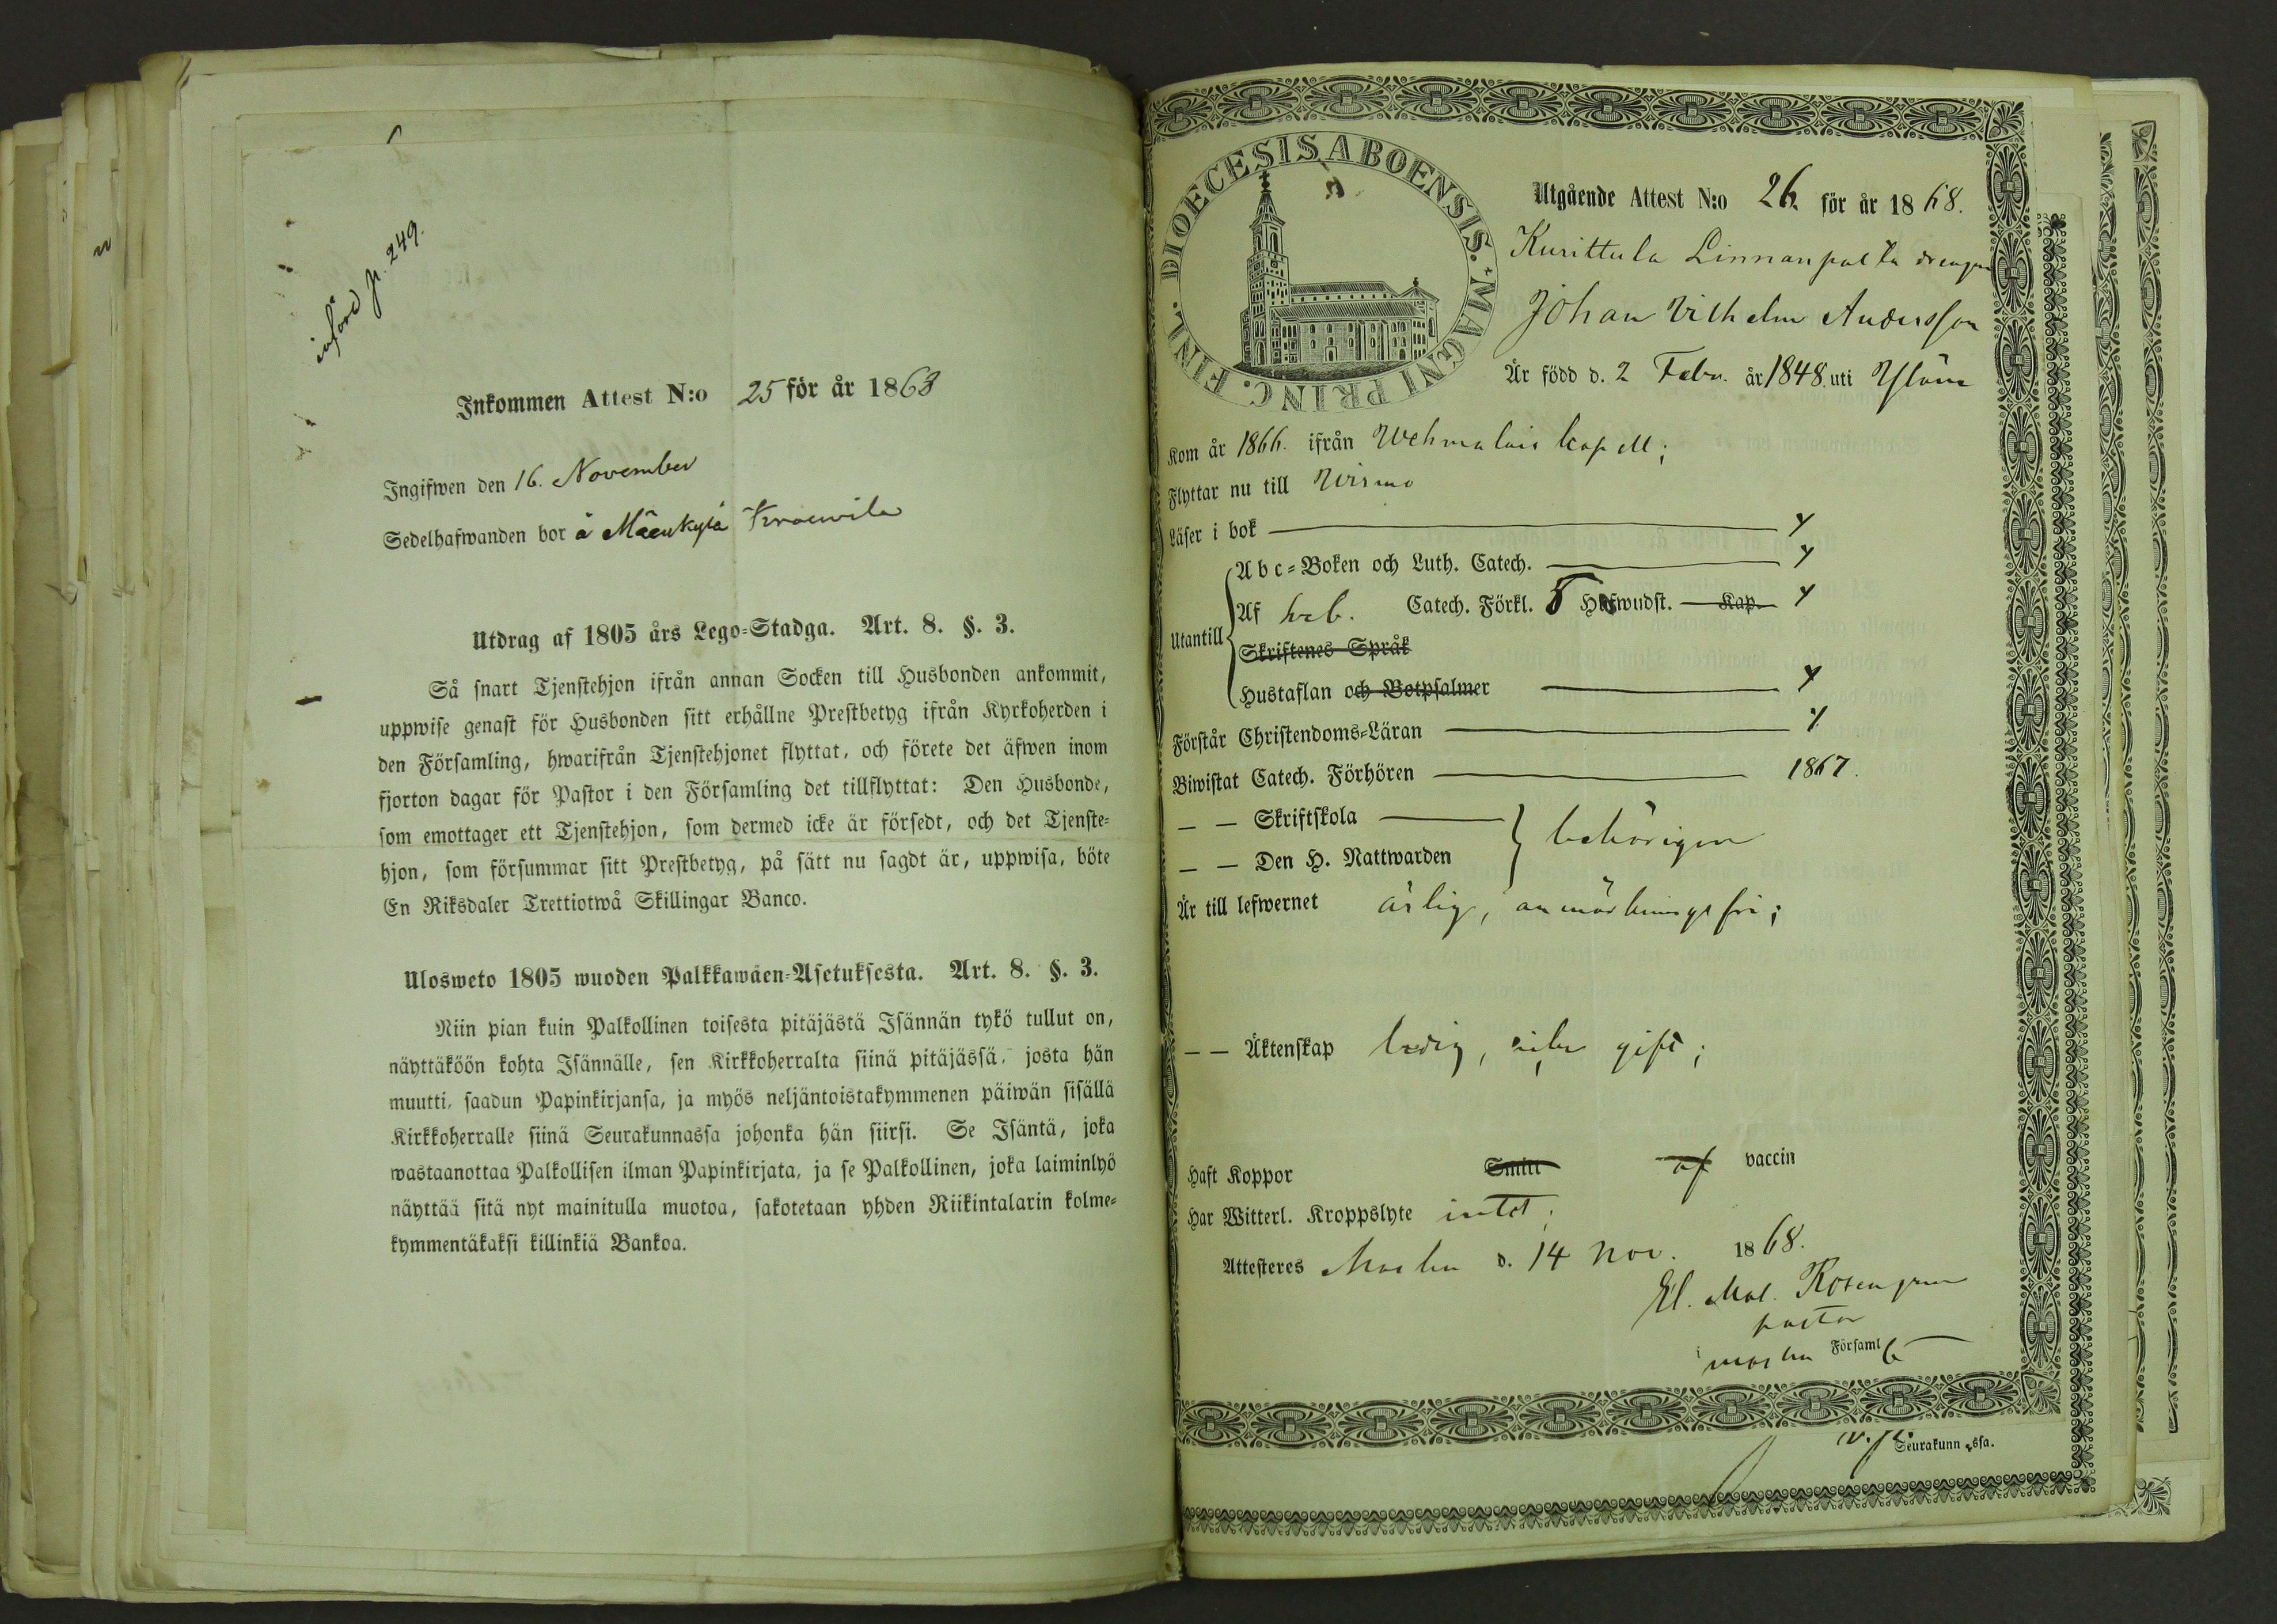 införd p. 249.
Inkommen Attest N:o 25 för år 1868
Ingifwen den 16. November
Sedelhafwanden bor å Mäenkylä
Utdrag af 1805 års Lego-Stadga. Art. 8. §. 3.
Så snart Tjenstehjon ifrån annan Socken till Husbonden ankommit,
uppwise genast för Husbonden sitt erhållne Prestbetyg ifrån Kyrkoherden i
den Församling, hwarifrån Tjenstehjonet flyttat, och förete det äfwen inom
fjorton dagar för Pastor i den Församling det tillflyttat: Den Husbonde,
som emottager ett Tjenstehjon, som dermed icke är försedt, och det Tjenste-
hjon, som försummar sitt Prestbetyg, på sätt nu sagdt är, uppwisa, böte
En Riksdaler Trettiotwå Skillingar Banco.
Ulosweto 1805 wuoden Palkkawäen-Asetuksesta. Art. 8. §. 3.
Niin pian kuin Palkollinen toisesta pitäjästä Isännän tykö tullut on,
näyttäköön kohta Isännälle, sen Kirkkoherralta siinä pitäjässä, josta hän
muutti, saadun Papinkirjansa, ja myös neljäntoistakymmenen päiwän sisällä
Kirkkoherralle siinä Seurakunnassa johonka hän siirsi. Se Isäntä, joka
wastaanottaa Palkollisen ilman Papinkirjata, ja se Palkollinen, joka laiminlyö
näyttää sitä nyt mainitulla muotoa, sakotetaan yhden Riikintalarin kolme-
kymmentäkaksi killinkiä Bankoa.
DIOECESIS ABOENSIS. MAGNI PRINC. FINL.
Utgående Attest N:o 26. för år 1868.
Kurittula Linnanpalta drengen
Johan Vilhelm Andersson
Är född d. 2 Febr. år 1848. uti Yläne
Kom år 1866. ifrån Wehmalais kapell;
Flyttar nu till Wirmo
Läser i bok
Utantill
Abc-Boken och Luth. Catech.
Af Catech. Förkl. 5 Hufwudst. Kap.
Skriftenes Språk
Hustaflan och Botpsalmer
Förstår Christendoms-Läran
Biwistat Catech. Förhören 1867.
— — Skriftskola
— — Den H. Nattwarden behörigen
Är till lefwernet ärlig, anmärkningsfri;
— — Äktenskap ledig, gift;
Haft Koppor Smitt af vaccin
Har Witterl. Kroppslyte intet;
Attesteres Masku d. 14 Nov. 1868.
Rosengren
pastor
i Masku Församl
Seurakunn ssa.